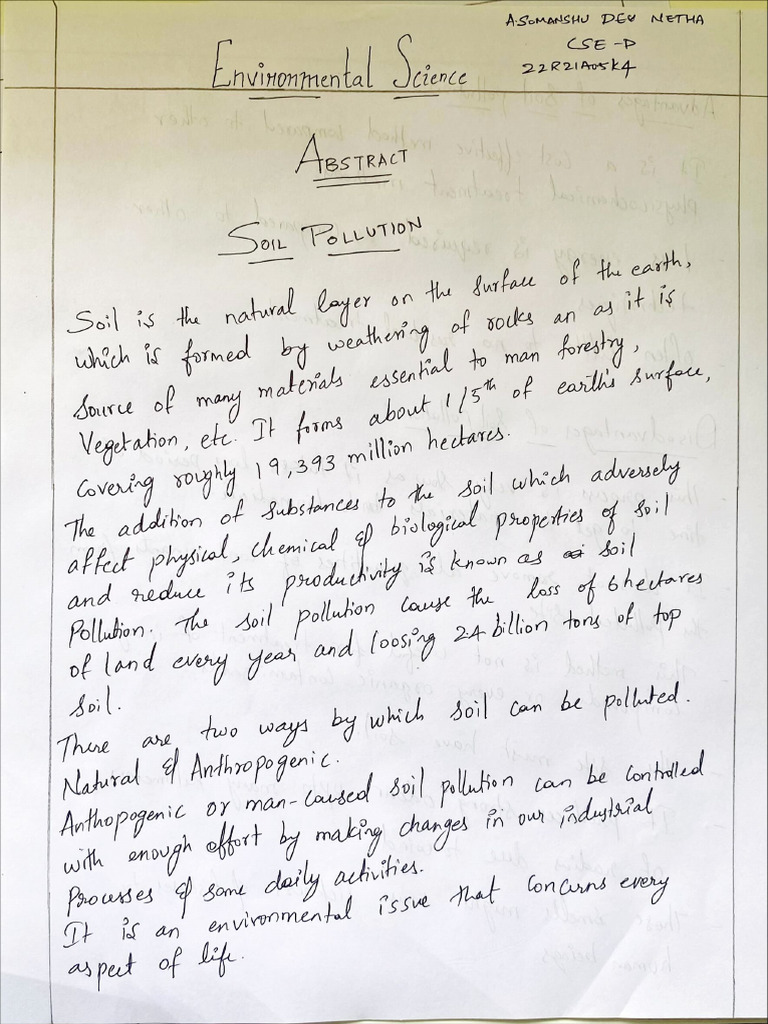 A.SOMANSHU DEV NETHA
CSE-D
22R21A05K4
Environmental Science
ABSTRACT
SOIL POLLUTION
Soil is the natural layer on the surface of the earth,
which is formed by weathering of rocks an as it is
source of many materials essential to man forestry,
Vegetation, etc. It forms about 1/5th of earth's surface,
covering roughly 19,393 million hectares.
The addition of substances to the soil which adversely
affect physical, chemical & biological properties of soil
and reduce its productivity is known as soil
Pollution. The soil pollution cause the loss of 6 hectares
of land every year and loosing 24 billion tons of top
soil.
There are two ways by which soil can be polluted.
Natural & Anthropogenic.
Anthopogenic or man-caused soil pollution can be controlled
with enough effort by making changes in our industrial
Processes & some daily activities.
It is an environmental issue that concerns every
aspect of life.